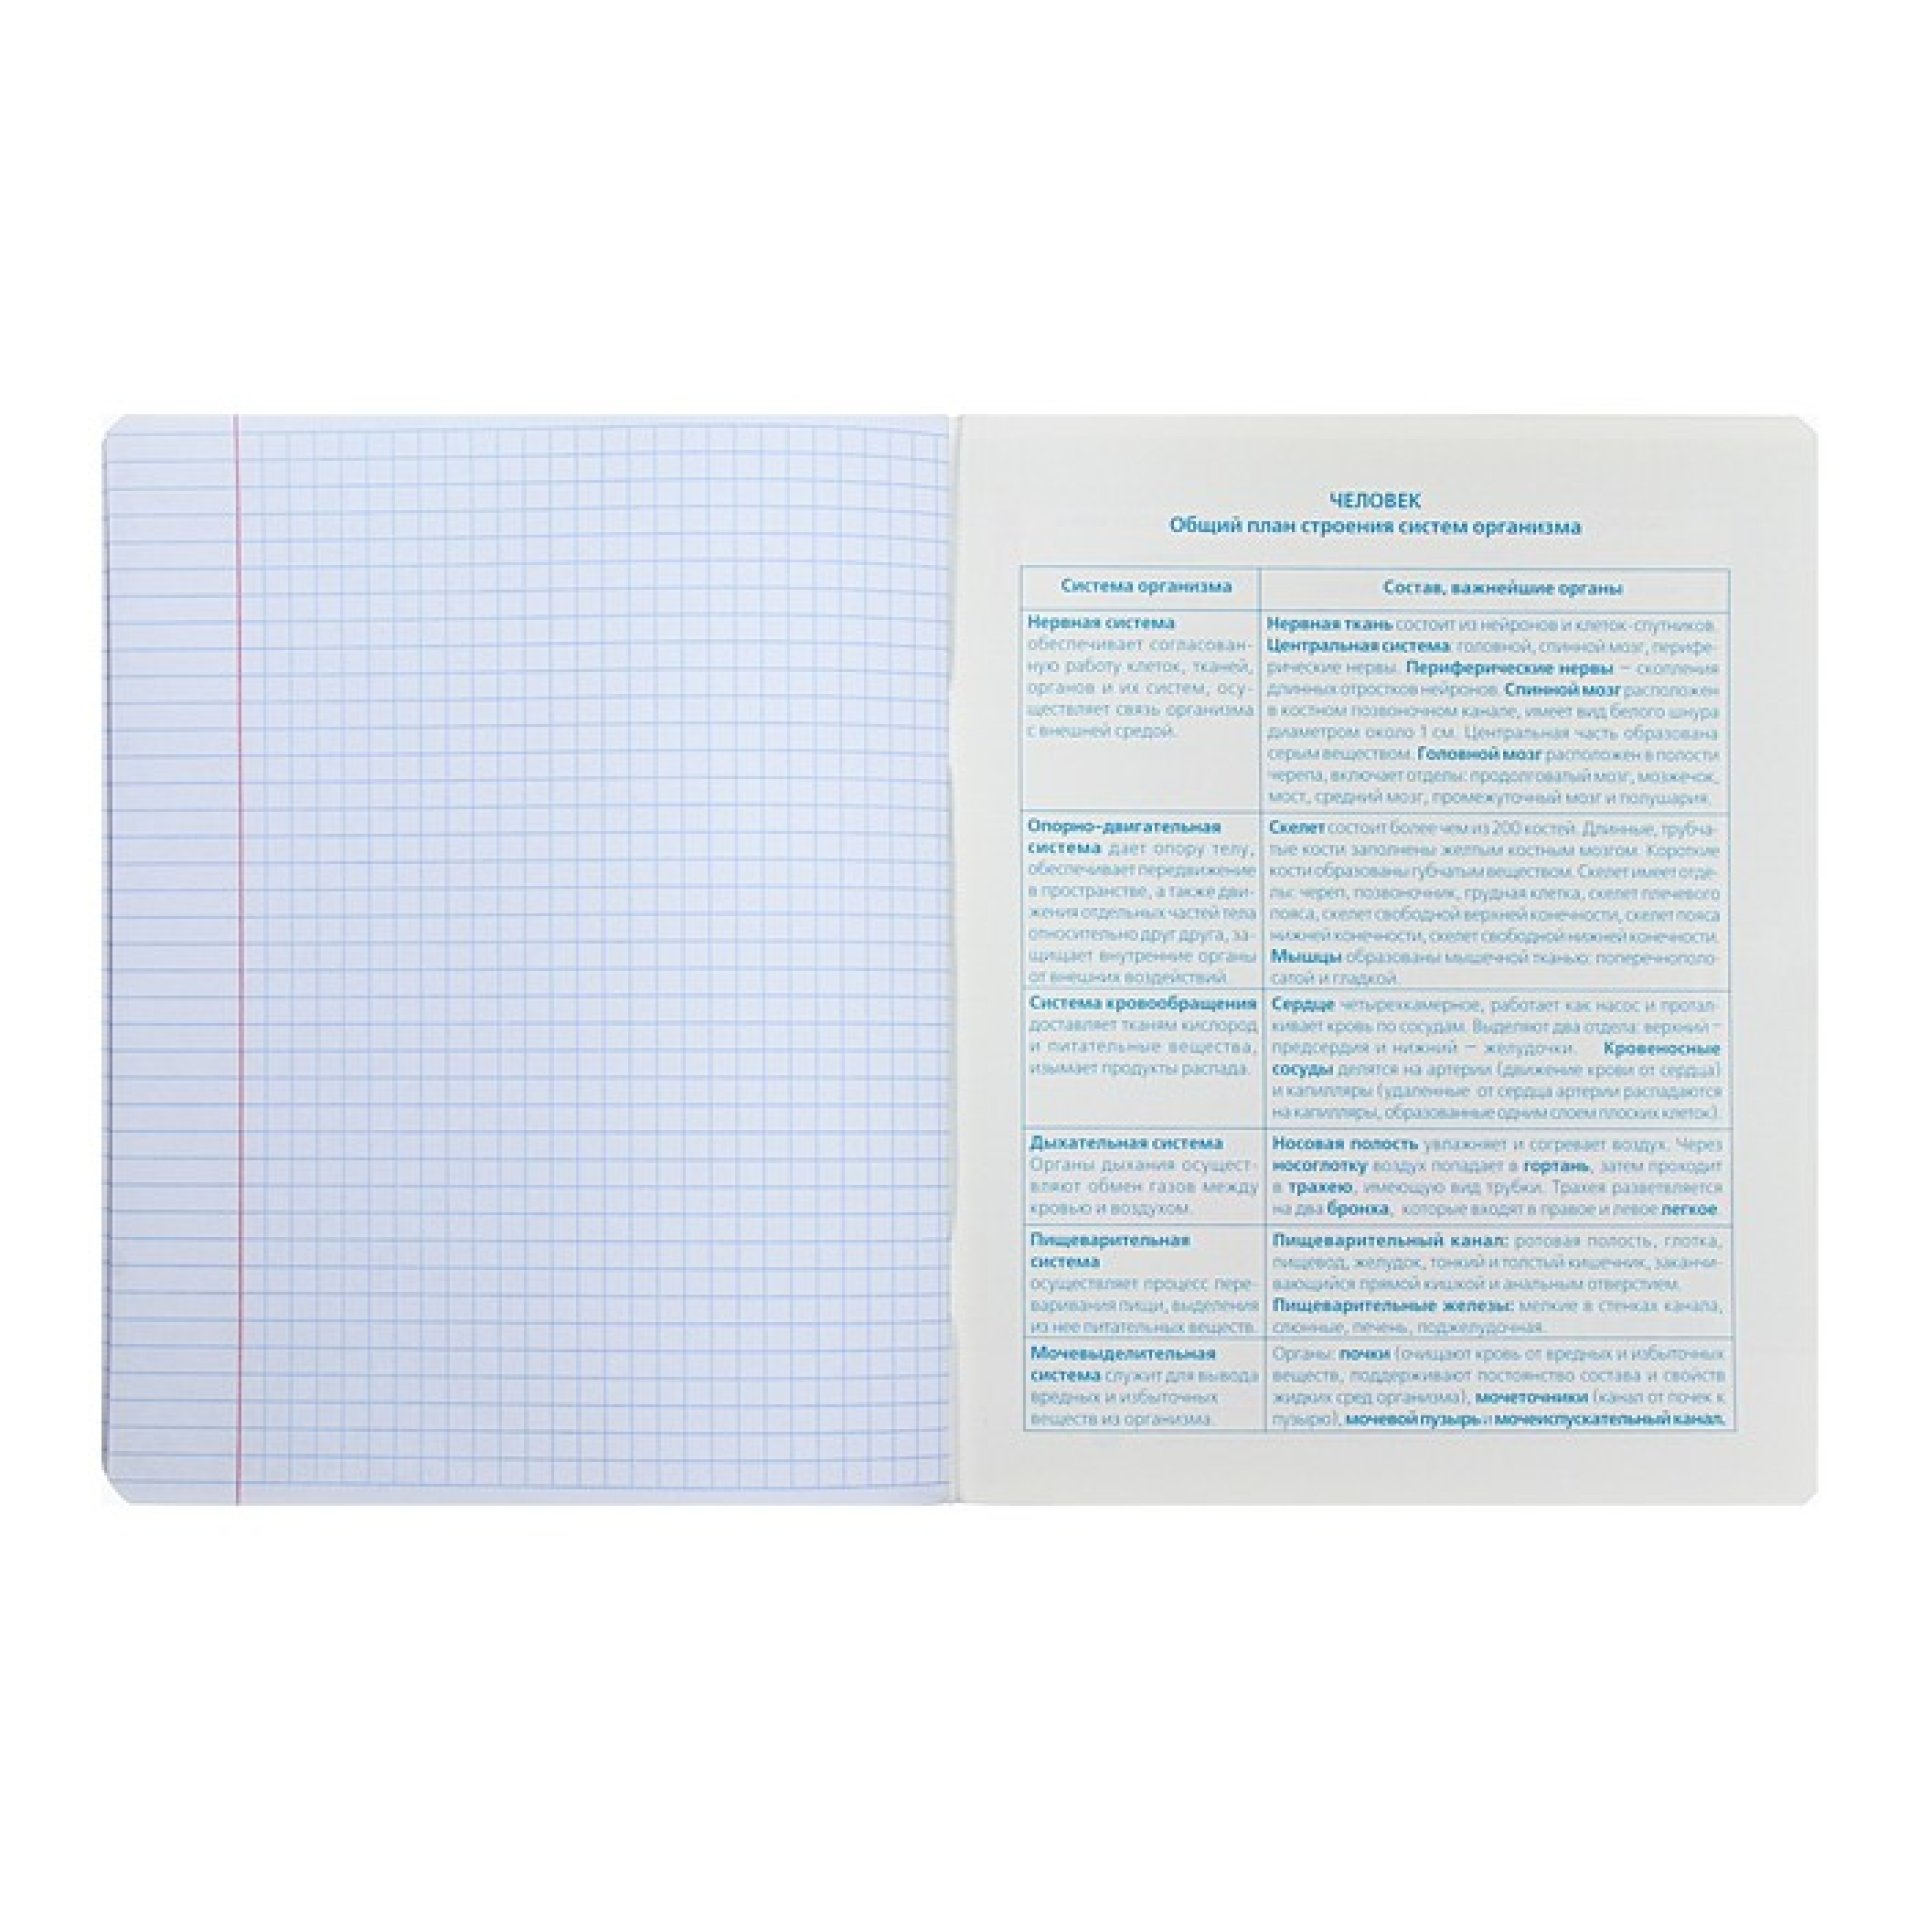 ЧЕЛОВЕК
Общий план строения систем организма
Система организма
Состав, важнейшие органы
Нервная система
обеспечивает согласован-
ную работу клеток, тканей,
органов и их систем, осу-
ществляет связь организма
с внешней средой.
Нервная ткань состоит из нейронов и клеток-спутников.
Центральная система: головной, спинной мозг, перифе-
рические нервы. Периферические нервы – скопления
длинных отростков нейронов. Спинной мозг расположен
в костном позвоночном канале, имеет вид белого шнура
диаметром около 1 см. Центральная часть образована
серым веществом. Головной мозг расположен в полости
черепа, включает отделы: продолговатый мозг, мозжечок,
мост, средний мозг, промежуточный мозг и полушария.
Опорно-двигательная
система дает опору телу,
обеспечивает передвижение
в пространстве, а также дви-
жения отдельных частей тела
относительно друг друга, за-
щищает внутренние органы
от внешних воздействий.
Скелет состоит более чем из 200 костей. Длинные, трубча-
тые кости заполнены желтым костным мозгом. Короткие
кости образованы губчатым веществом. Скелет имеет отде-
лы: череп, позвоночник, грудная клетка, скелет плечевого
пояса, скелет свободной верхней конечности, скелет пояса
нижней конечности, скелет свободной нижней конечности.
Мышцы образованы мышечной тканью: поперечнополо-
сатой и гладкой.
Система кровообращения
доставляет тканям кислород
и питательные вещества,
изымает продукты распада.
Сердце четырехкамерное, работает как насос и протал-
кивает кровь по сосудам. Выделяют два отдела: верхний –
предсердия и нижний – желудочки. Кровеносные
сосуды делятся на артерии (движение крови от сердца)
и капилляры (удаленные от сердца артерии распадаются
на капилляры, образованные одним слоем плоских клеток).
Дыхательная система
Органы дыхания осущест-
вляют обмен газов между
кровью и воздухом.
Носовая полость увлажняет и согревает воздух. Через
носоглотку воздух попадает в гортань, затем проходит
в трахею, имеющую вид трубки. Трахея разветвляется
на два бронха, которые входят в правое и левое легкое.
Пищеварительная
система
осуществляет процесс пере-
варивания пищи, выделения
из нее питательных веществ.
Пищеварительный канал: ротовая полость, глотка,
пищевод, желудок, тонкий и толстый кишечник, заканчи-
вающийся прямой кишкой и анальным отверстием.
Пищеварительные железы: мелкие в стенках канала,
слюнные, печень, поджелудочная.
Мочевыделительная
система служит для вывода
вредных и избыточных
веществ из организма.
Органы: почки (очищают кровь от вредных и избыточных
веществ, поддерживают постоянство состава и свойств
жидких сред организма), мочеточники (канал от почек к
пузырю), мочевой пузырь и мочеиспускательный канал.